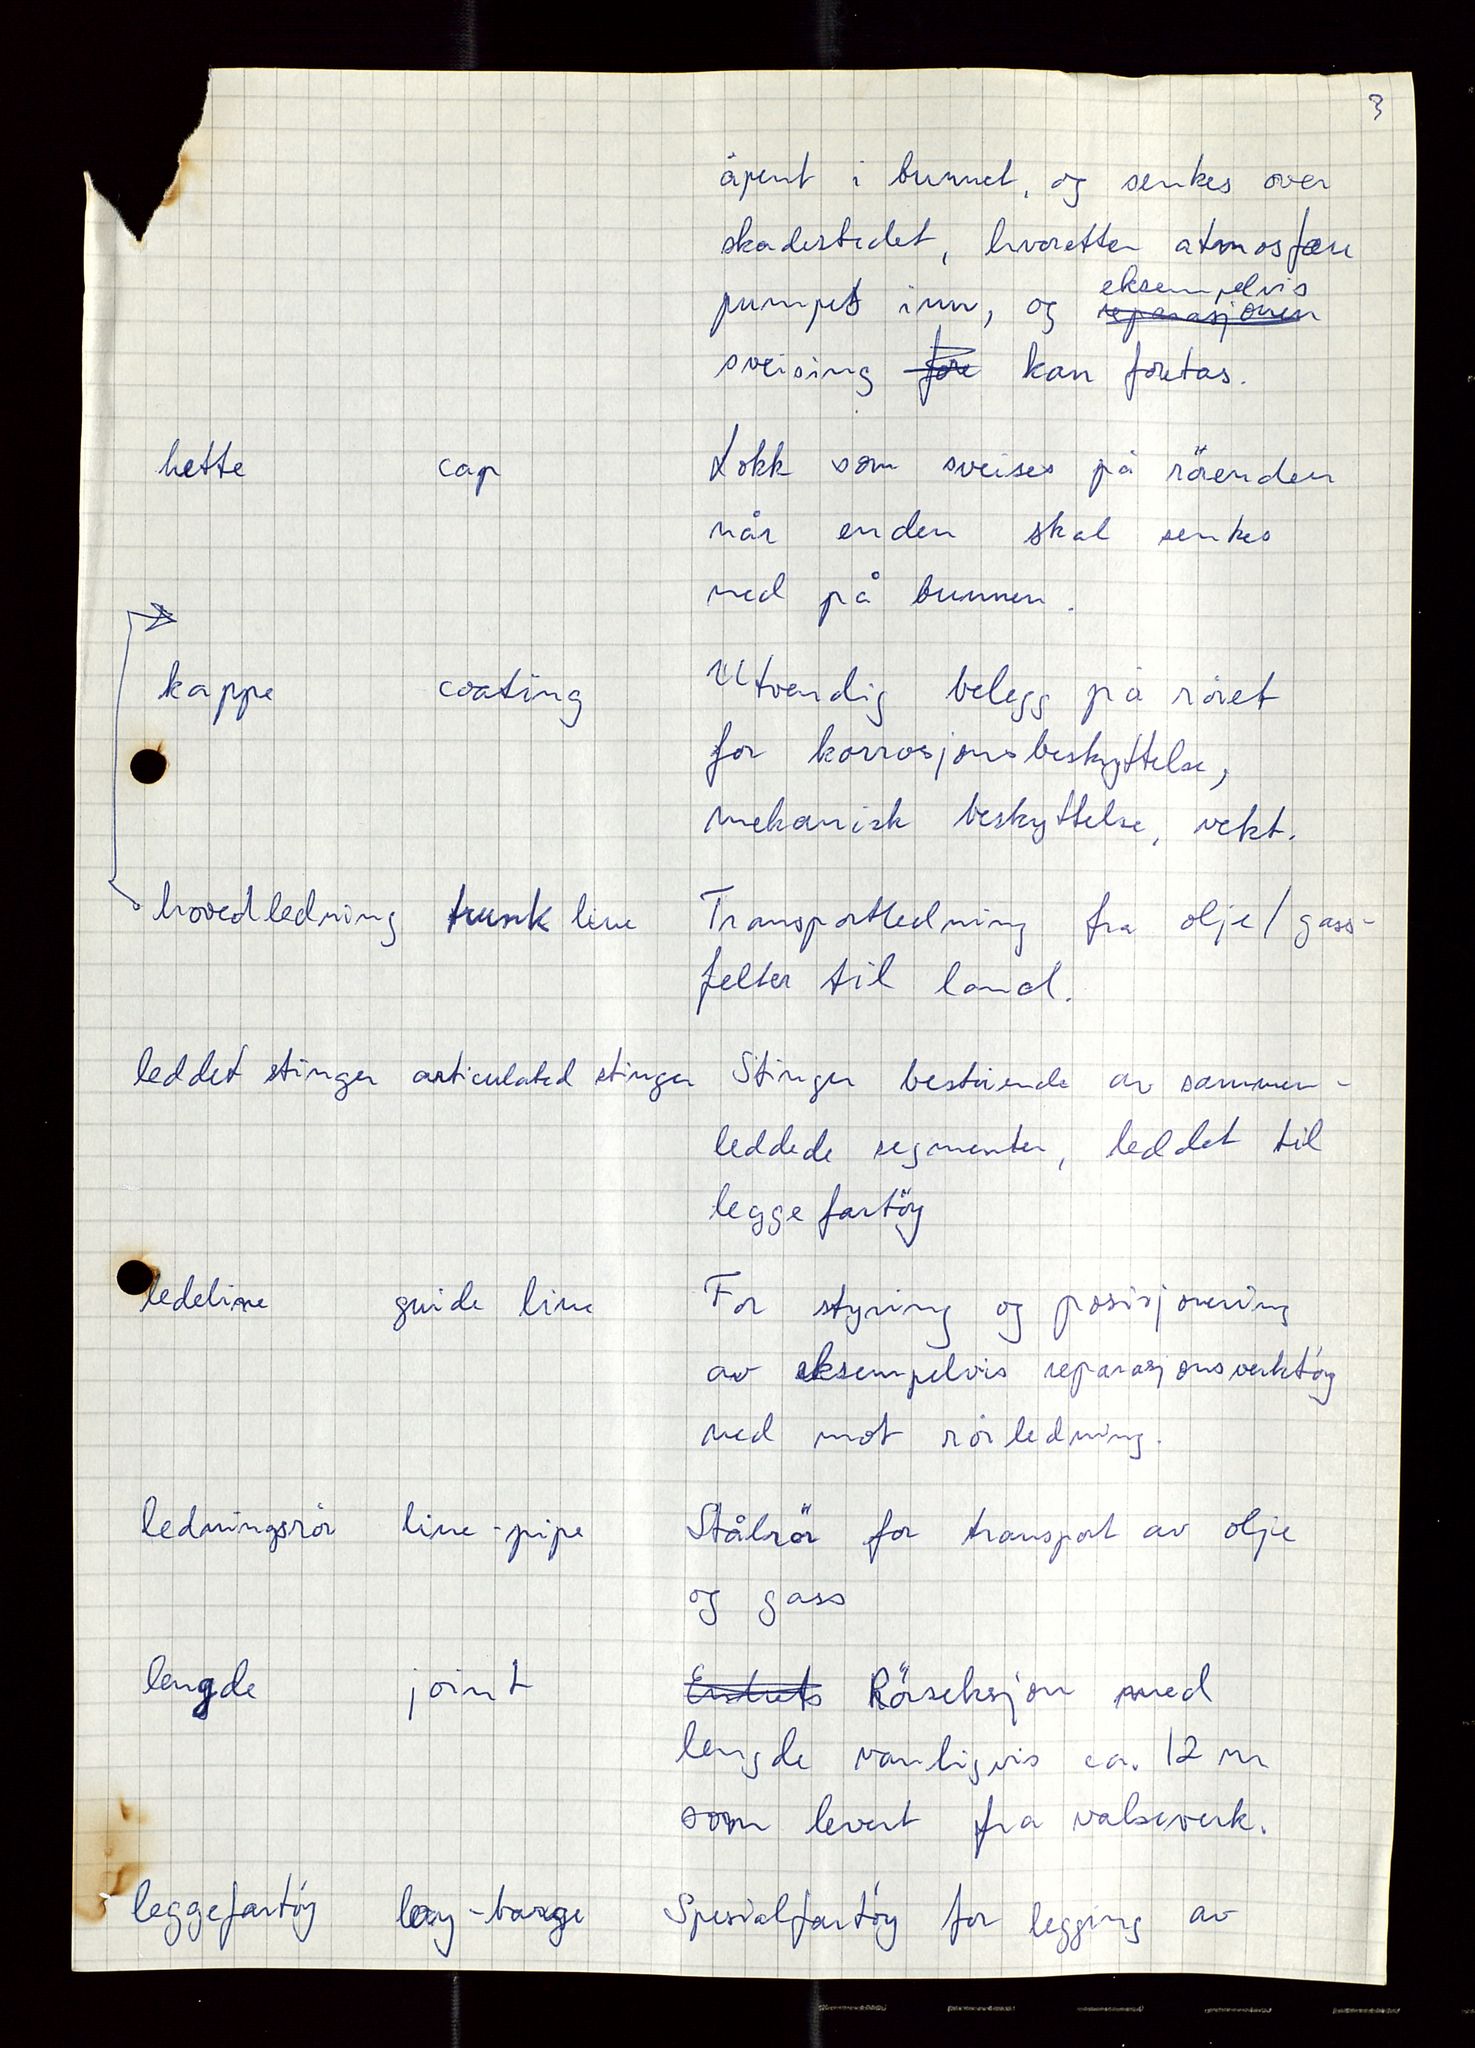 3
åpent i bunnet, og senkes over
skadestedet, hvoretter atmosfære
pumpes inn, og ~~reparasjonen~~ eksempelvis
sveising ~~fore~~ kan foretas.
hette cap Lokk som sveises på rörenden
når enden skal senkes
ned på bunnen.
kappe coating Utvendig belegg på röret
for korrosjonsbeskyttelse,
mekanisk beskyttelse, vekt.
hovedledning trunk line Transportledning fra olje/gass-
felter til land.
leddet stinger articulated stinger Stinger bestående av sammen-
leddede segmenter, leddet til
leggefartöy
ledeline guide line For styring og posisjonering
av eksempelvis reparasjonsverktöy
ned mot rörledning.
ledningsrör line-pipe Stålrör for transport av olje
og gass
lengde joint Rörseksjon med
lengde vanligvis ca. 12 m
som levert fra valseverk.
leggefartöy lay-barge Spesialfartöy for legging av